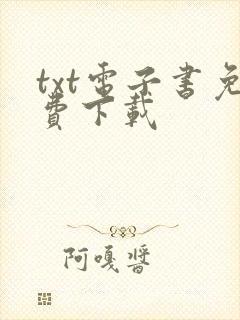 txt電子書免
費下載
阿嘎醬